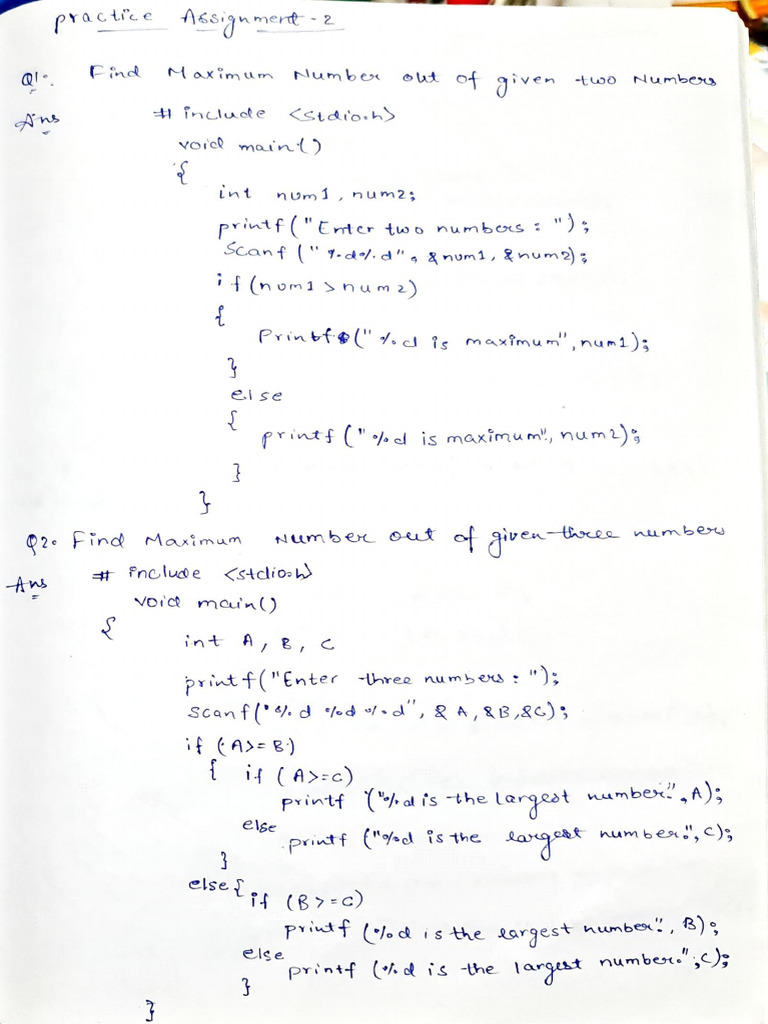 practice Assignment - 2
Q1. Find Maximum Number out of given two Numbers
Ans # include <stdio.h>
void main()
{
int num1, num2;
printf("Enter two numbers : ");
scanf("%d%d", &num1, &num2);
if (num1 > num2)
{
Printf("%d is maximum", num1);
}
else
{
printf("%d is maximum", num2);
}
}
Q2. Find Maximum Number out of given three numbers
Ans # include <stdio.h>
void main()
{
int A, B, C
printf("Enter three numbers : ");
scanf("%d %d %d", &A, &B, &C);
if (A>=B)
{ if (A>=C)
printf ("%d is the largest number.", A);
else
printf ("%d is the largest number.", C);
}
else {
if (B>=C)
printf (%d is the largest number.", B);
else
printf (%d is the largest number.", C);
}
}